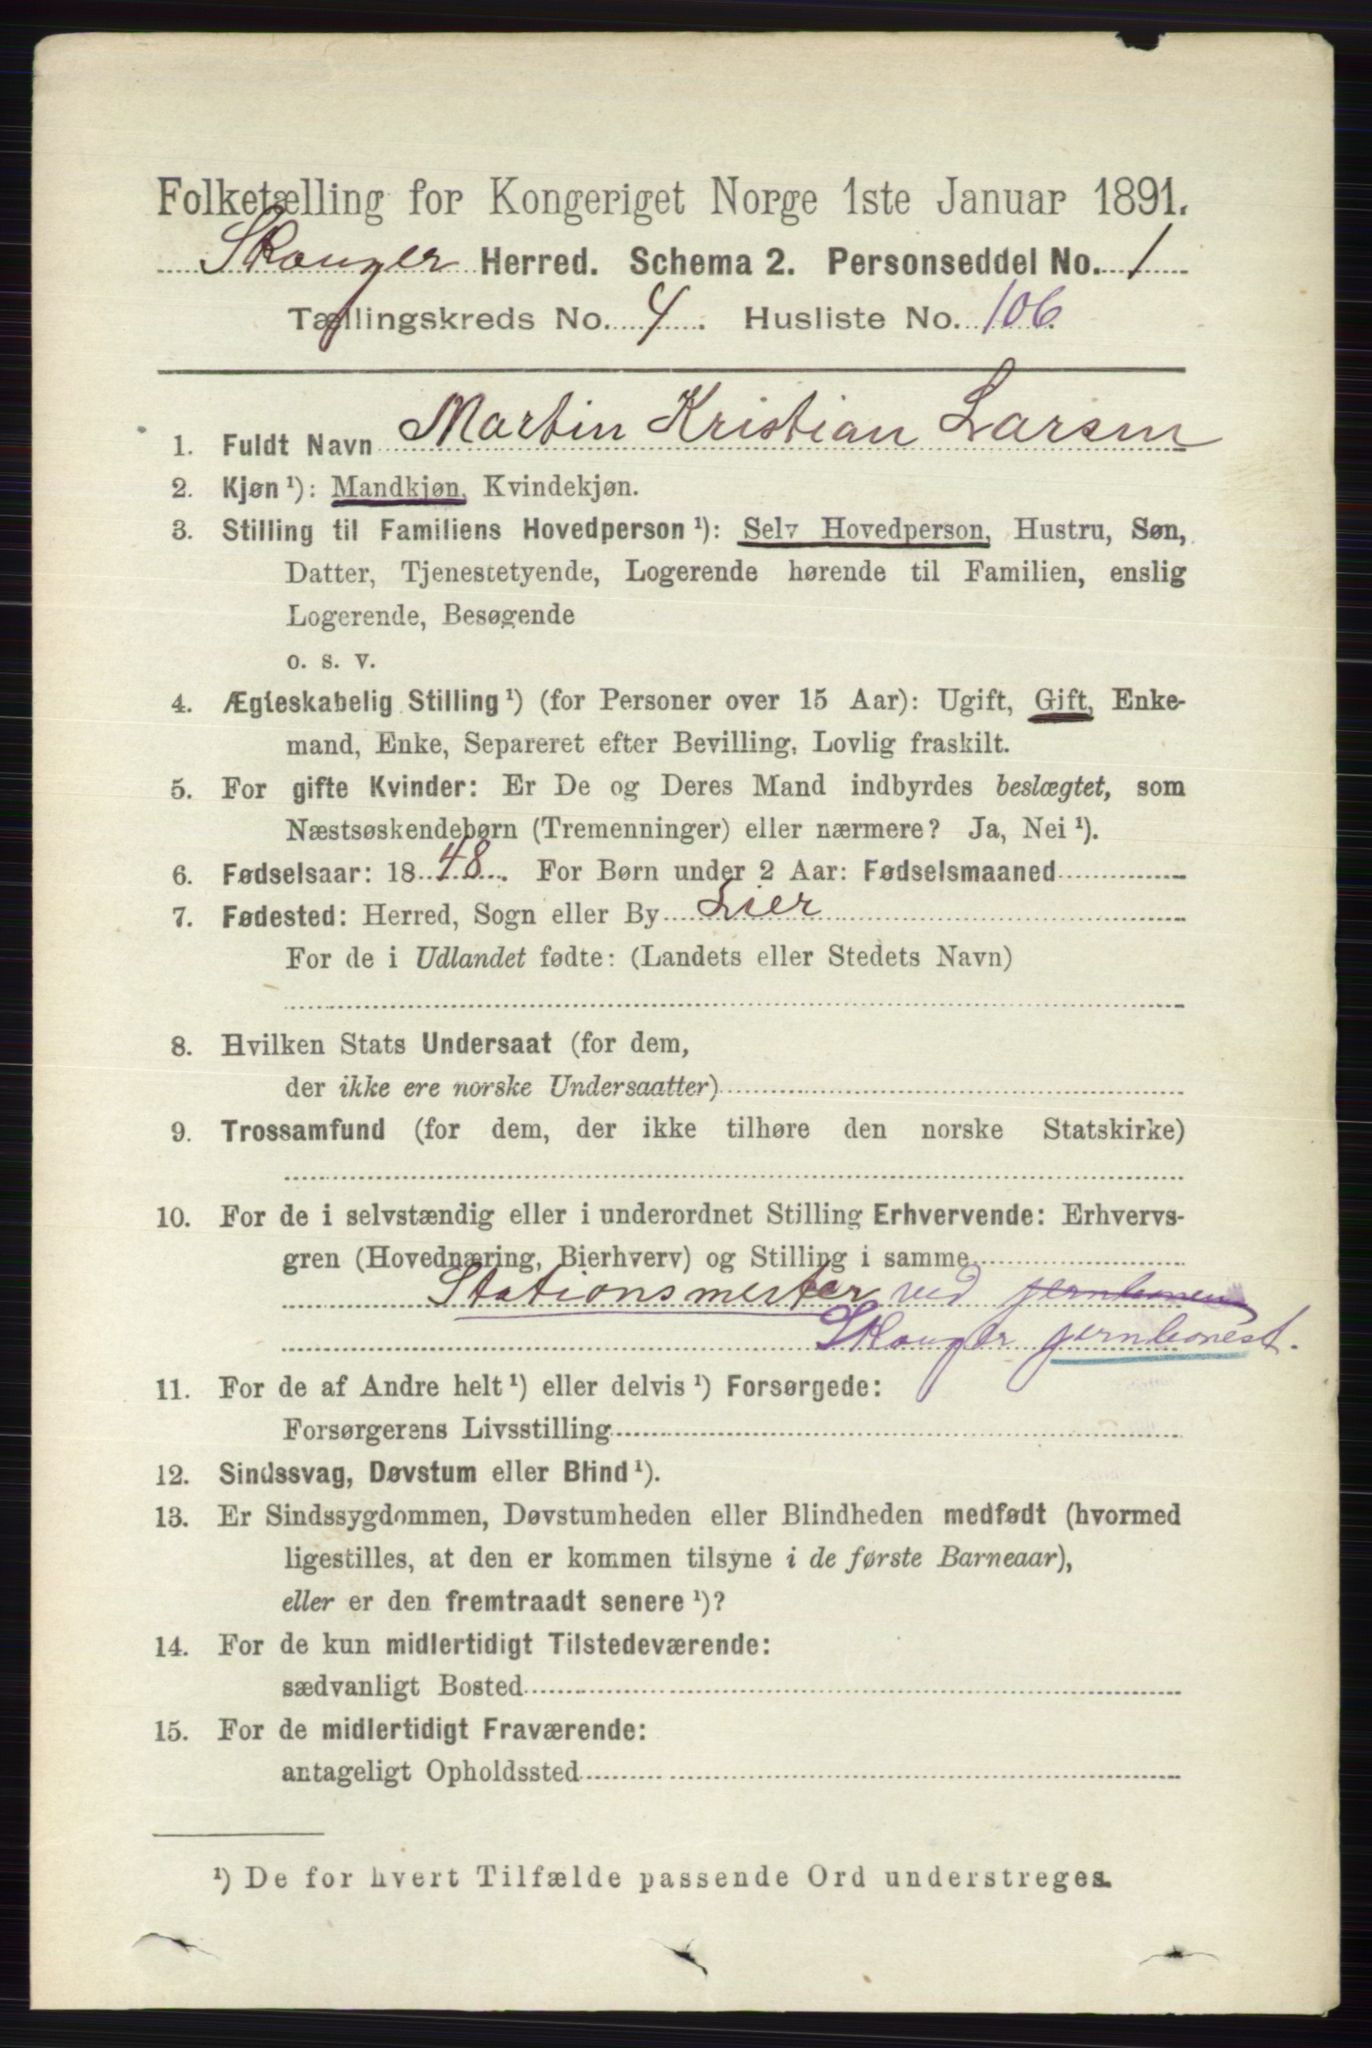 Folketælling for Kongeriget Norge 1ste Januar 1891.
Skouger Herred. Schema 2. Personseddel No. 1
Tællingskreds No. 4. Husliste No. 106.
1. Fuldt Navn Martin Kristian Larsen
2. Kjøn ¹): Mandkjøn, Kvindekjøn.
3. Stilling til Familiens Hovedperson ¹): Selv Hovedperson, Hustru, Søn,
Datter, Tjenestetyende, Logerende hørende til Familien, enslig
Logerende, Besøgende
o. s. v.
4. Ægteskabelig Stilling ¹) (for Personer over 15 Aar): Ugift, Gift, Enke-
mand, Enke, Separeret efter Bevilling, Lovlig fraskilt.
5. For gifte Kvinder: Er De og Deres Mand indbyrdes beslægtet, som
Næstsøskendebørn (Tremenninger) eller nærmere? Ja, Nei ¹).
6. Fødselsaar: 1848. For Børn under 2 Aar: Fødselsmaaned
7. Fødested: Herred, Sogn eller By Lier
For de i Udlandet fødte: (Landets eller Stedets Navn)
8. Hvilken Stats Undersaat (for dem,
der ikke ere norske Undersaatter)
9. Trossamfund (for dem, der ikke tilhøre den norske Statskirke)
10. For de i selvstændig eller i underordnet Stilling Erhvervende: Erhvervs-
gren (Hovednæring, Bierhverv) og Stilling i samme
Stationsmester ved jernbanen
Skouger jernbanest.
11. For de af Andre helt ¹) eller delvis ¹) Forsørgede:
Forsørgerens Livsstilling
12. Sindssvag, Døvstum eller Blind ¹).
13. Er Sindssygdommen, Døvstumheden eller Blindheden medfødt (hvormed
ligestilles, at den er kommen tilsyne i de første Barneaar),
eller er den fremtraadt senere ¹)?
14. For de kun midlertidigt Tilstedeværende:
sædvanligt Bosted
15. For de midlertidigt Fraværende:
antageligt Opholdssted
¹) De for hvert Tilfælde passende Ord understreges.